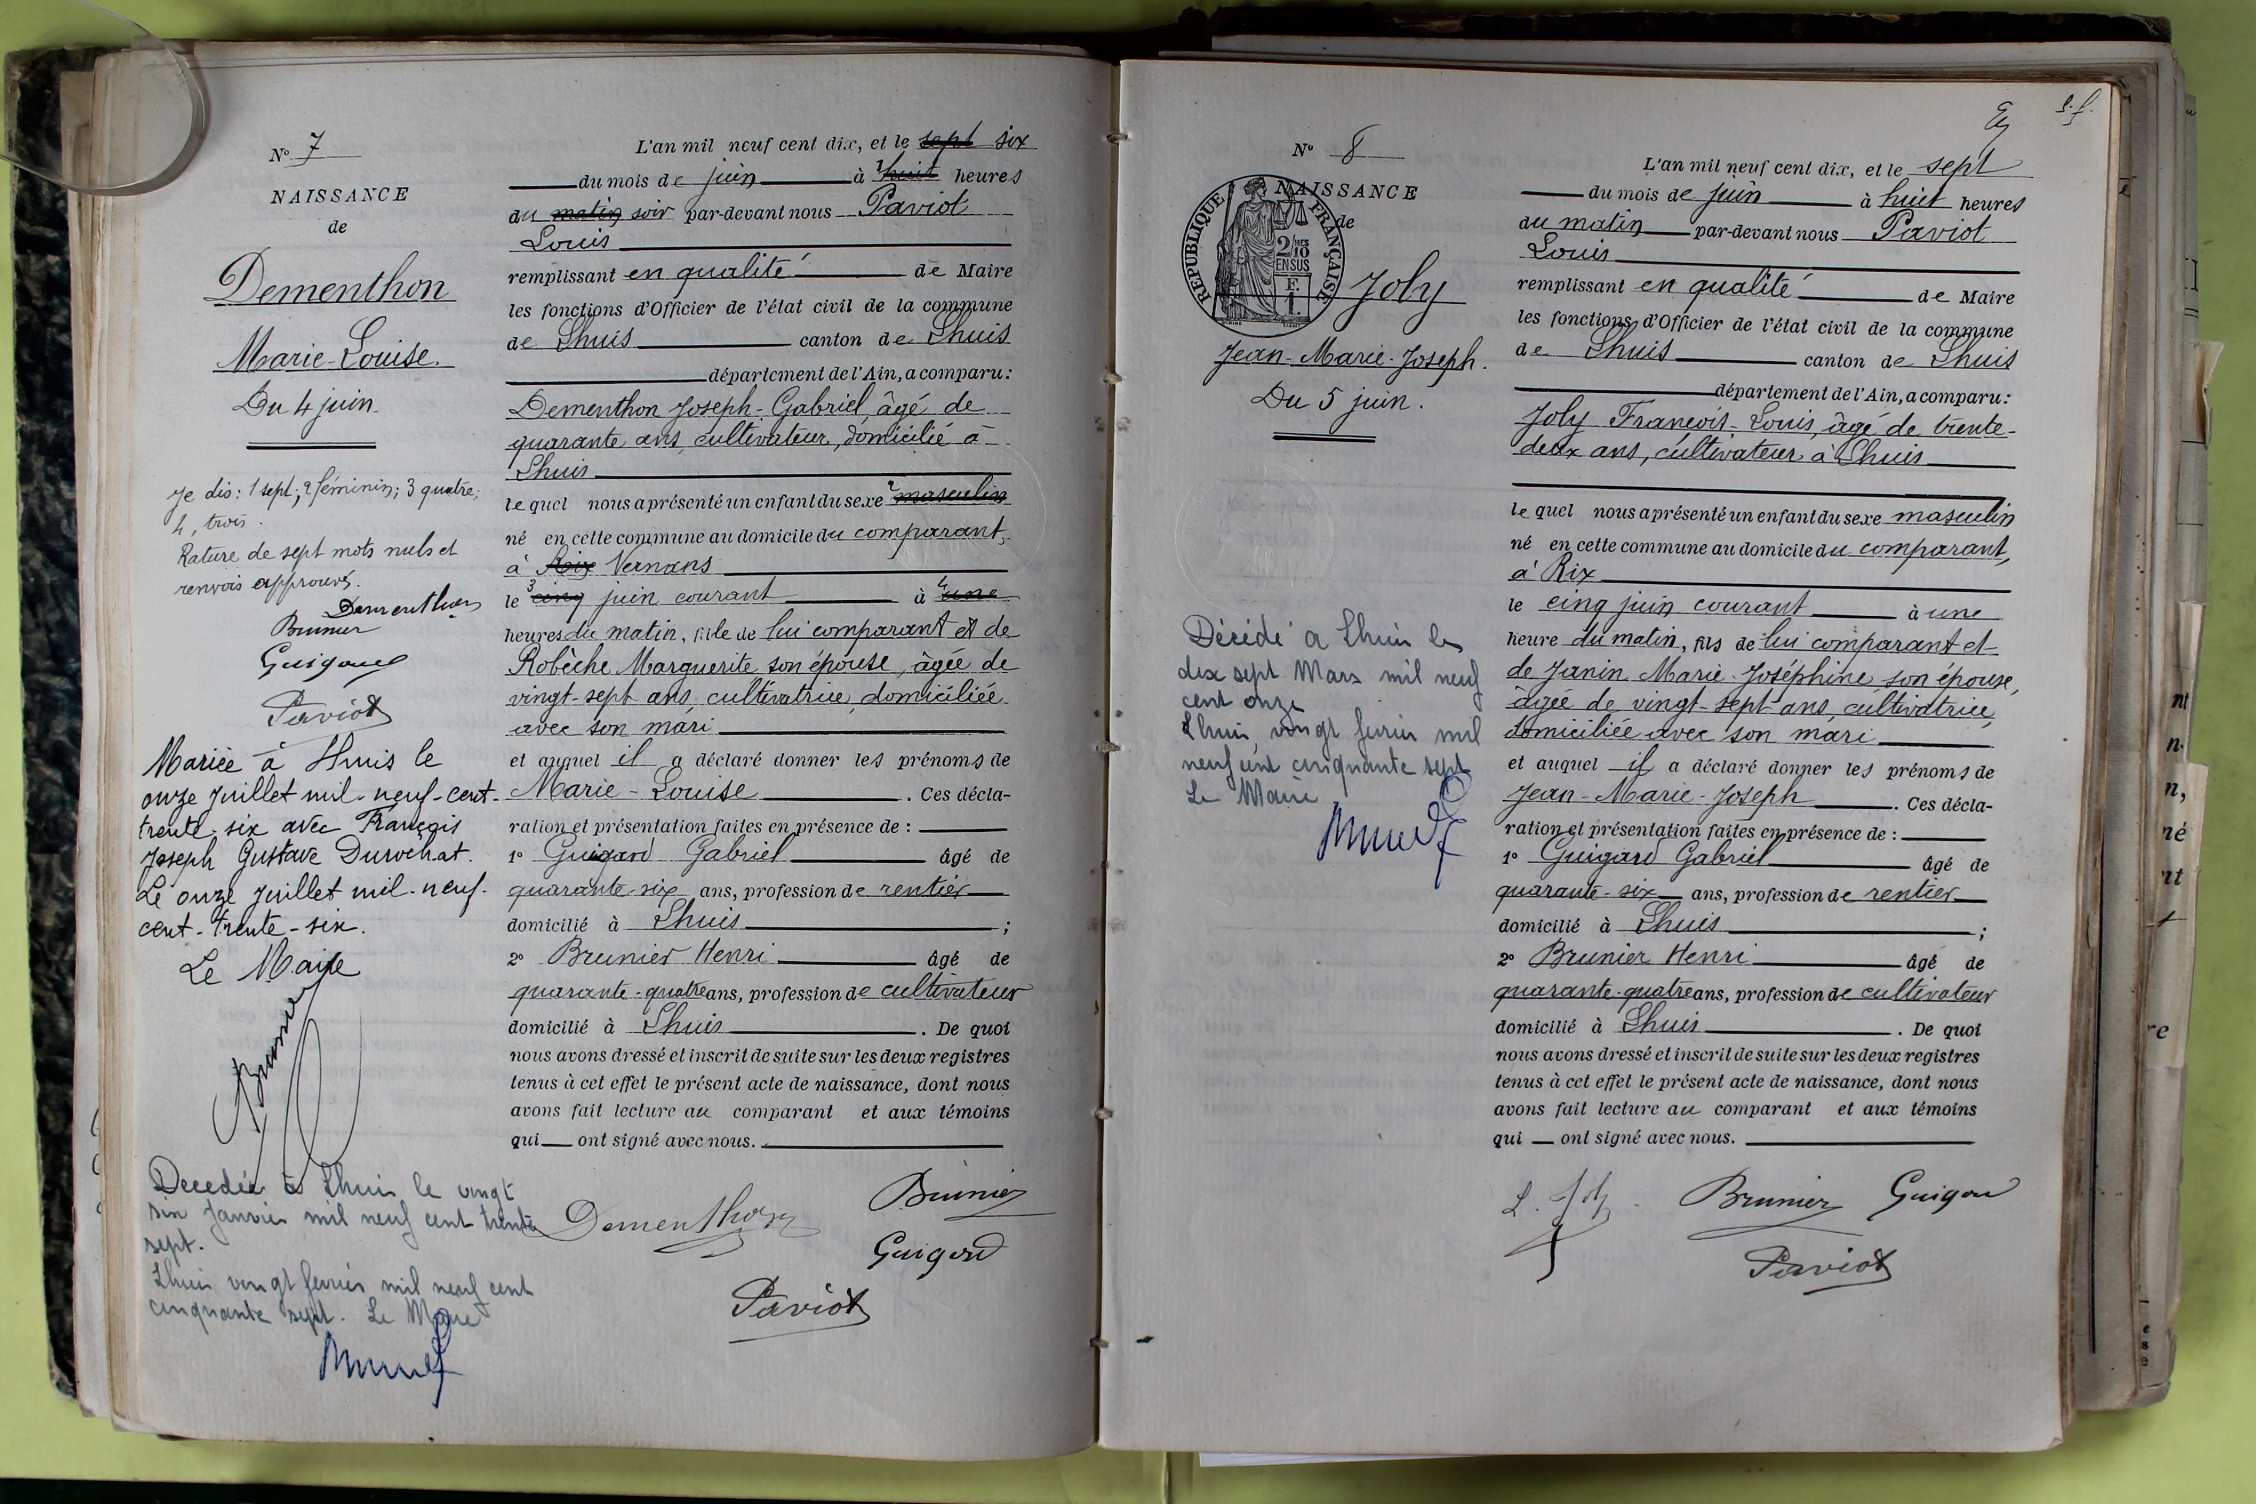 N° 7
NAISSANCE
de
Dementhon
Marie-Louise.
Du 4 juin.
Je dis: 1 sept; 2 féminin; 3 quatre;
4, trois.
Rature de sept mots nuls et
renvois approuvés.
Dementhon
Brunier
Guigard
Paviot
Mariée à Lhuis le
onze Juillet mil-neuf-cent-
trente-six avec François
Joseph Gustave Durochat.
Le onze Juillet mil-neuf-
cent-trente-six.
Le Maire
Brunier
Decedée à Lhuis le vingt
six Janvier mil neuf cent trente
sept.
Lhuis vingt fevrier mil neuf cent
cinquante sept. Le Maire
L'an mil neuf cent dix, et le sept six
du mois de juin à 1 huit heures
du matin soir par-devant nous Paviot
Louis
remplissant en qualité de Maire
les fonctions d'Officier de l'état civil de la commune
de Lhuis canton de Lhuis
département de l'Ain, a comparu:
Dementhon Joseph-Gabriel, âgé de
quarante ans, cultivateur, domicilié à
Lhuis
lequel nous a présenté un enfant du sexe 2 masculin
né en cette commune au domicile du comparant,
à Rix Vernans
le 3 cinq juin courant à 4 une
heures du matin, fille de lui comparant et de
Robèche Marguerite son épouse, âgée de
vingt-sept ans, cultivatrice, domiciliée
avec son mari
et auquel il a déclaré donner les prénoms de
Marie-Louise. Ces décla-
ration et présentation faites en présence de:
1° Guigard Gabriel âgé de
quarante-six ans, profession de rentier
domicilié à Lhuis;
2° Brunier Henri âgé de
quarante-quatre ans, profession de cultivateur
domicilié à Lhuis. De quoi
nous avons dressé et inscrit de suite sur les deux registres
tenus à cet effet le présent acte de naissance, dont nous
avons fait lecture au comparant et aux témoins
qui ont signé avec nous.
Dementhon Brunier
Guigard
Paviot
N° 8
NAISSANCE
de
REPUBLIQUE FRANÇAISE
2/10
EN SUS
F.
1.
Joly
Jean-Marie-Joseph.
Du 5 juin.
Décédé a Lhuis le
dix sept Mars mil neuf
cent onze
Lhuis, vingt fevrier mil
neuf cent cinquante sept
Le Maire
L'an mil neuf cent dix, et le sept
du mois de juin à huit heures
du matin par-devant nous Paviot
Louis
remplissant en qualité de Maire
les fonctions d'Officier de l'état civil de la commune
de Lhuis canton de Lhuis
département de l'Ain, a comparu:
Joly François-Louis, âgé de trente-
deux ans, cultivateur à Lhuis
lequel nous a présenté un enfant du sexe masculin
né en cette commune au domicile du comparant,
à Rix
le cinq juin courant à une
heure du matin, fils de lui comparant et
de Janin Marie-Joséphine son épouse,
âgée de vingt-sept ans, cultivatrice,
domiciliée avec son mari
et auquel il a déclaré donner les prénoms de
Jean-Marie-Joseph. Ces décla-
ration et présentation faites en présence de:
1° Guigard Gabriel âgé de
quarante-six ans, profession de rentier
domicilié à Lhuis;
2° Brunier Henri âgé de
quarante-quatre ans, profession de cultivateur
domicilié à Lhuis. De quoi
nous avons dressé et inscrit de suite sur les deux registres
tenus à cet effet le présent acte de naissance, dont nous
avons fait lecture au comparant et aux témoins
qui ont signé avec nous.
L. Joly Brunier Guigard
Paviot